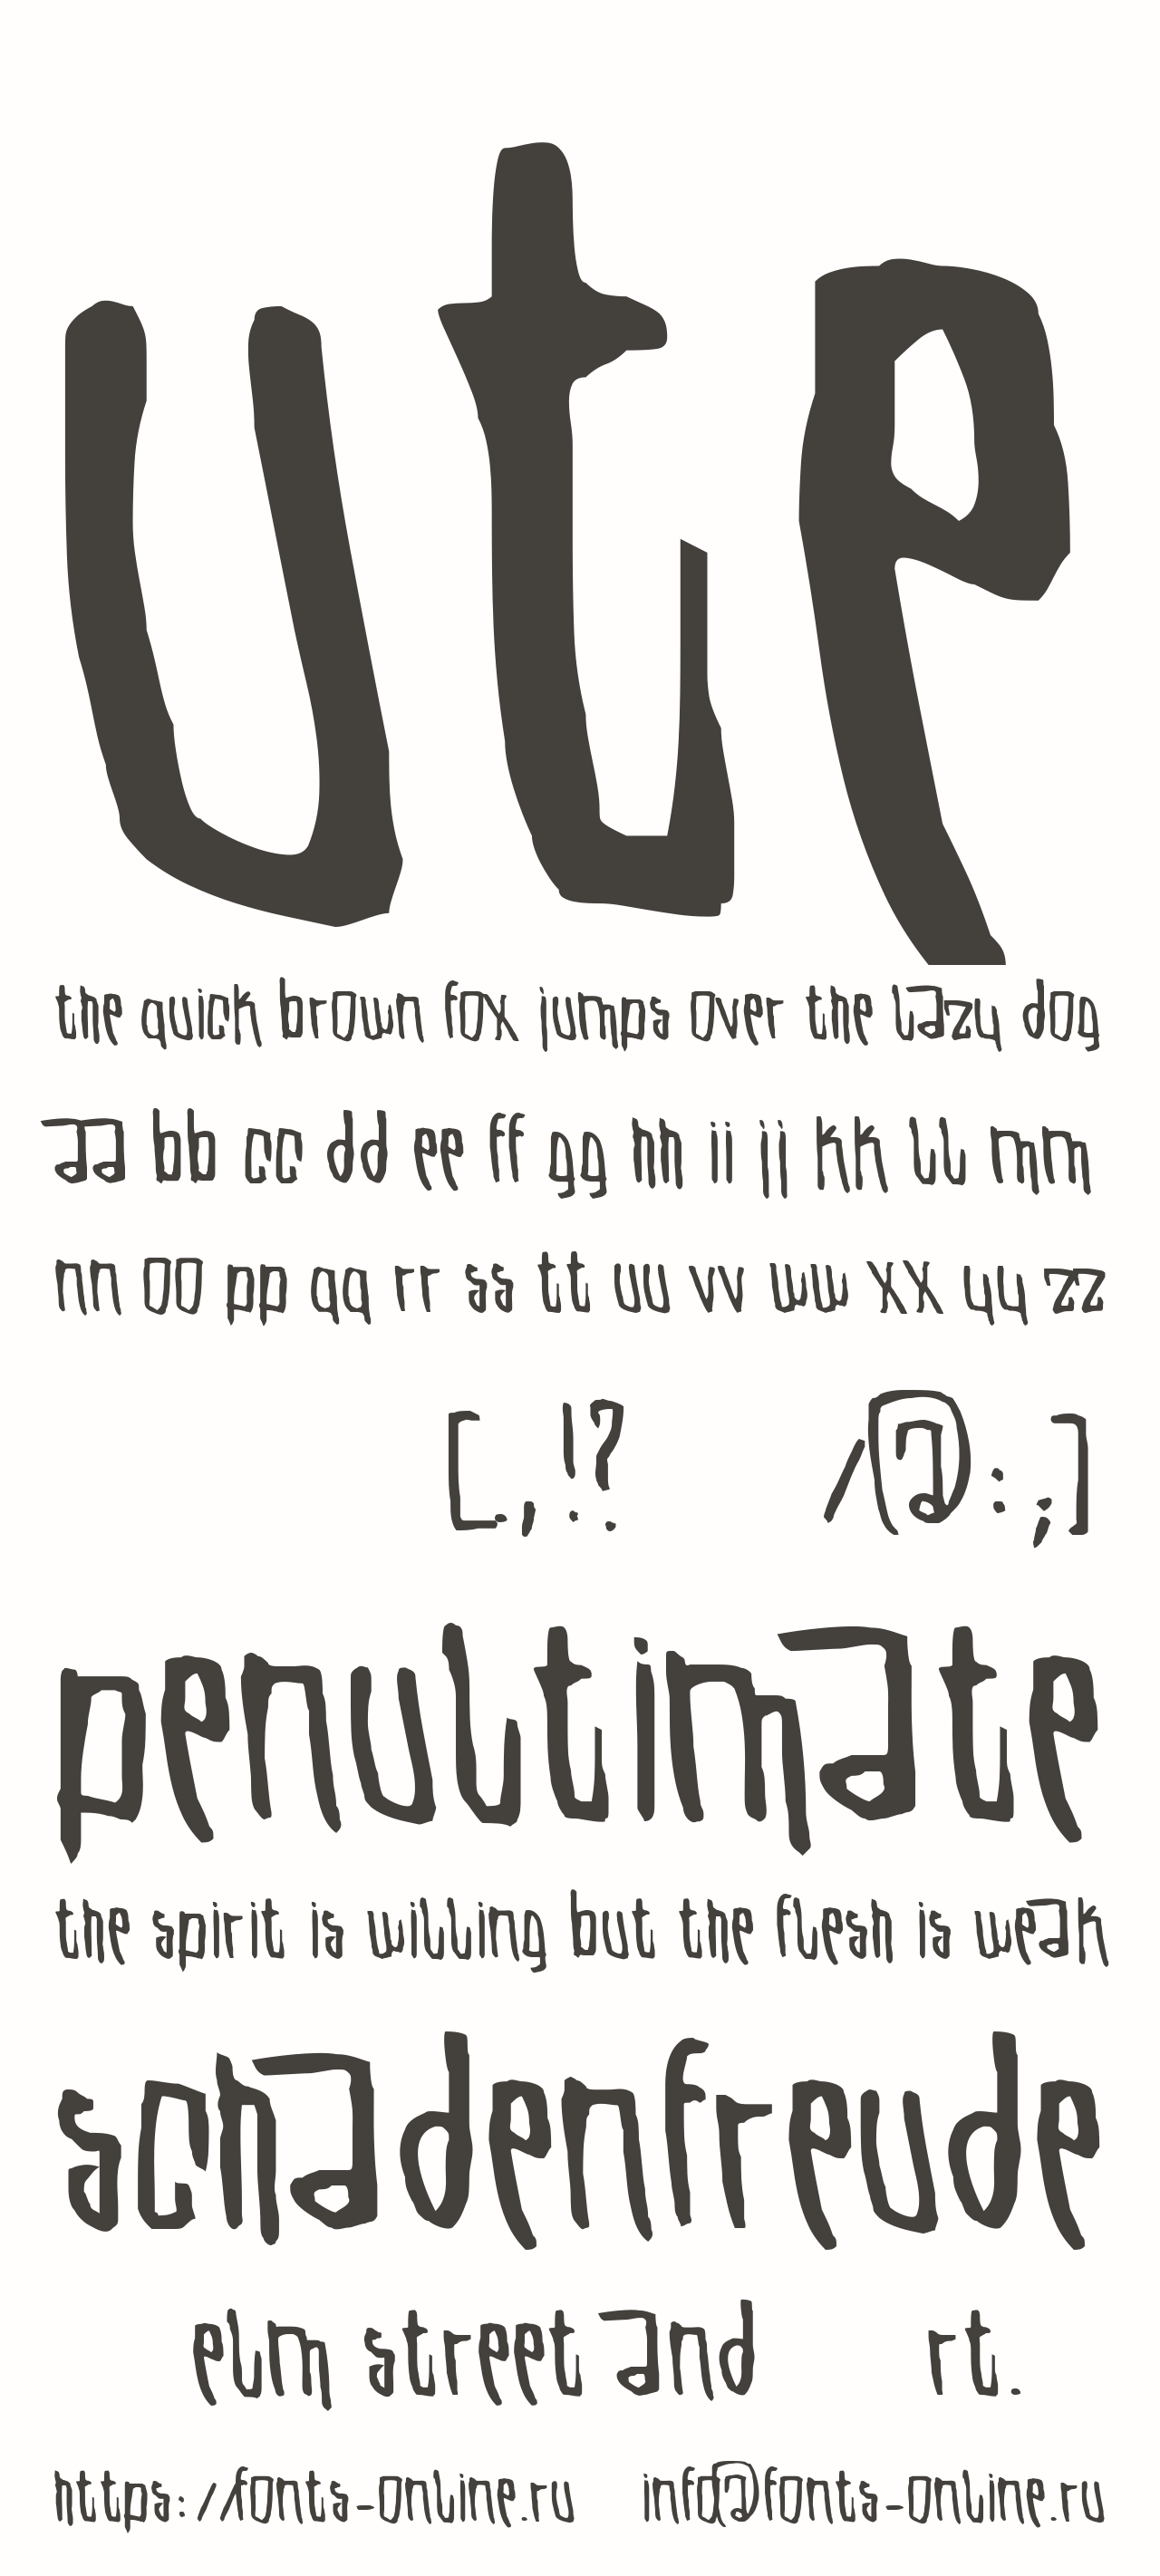 ute
the quick brown fox jumps over the lazy dog
aa bb cc dd ee ff gg hh ii jj kk ll mm
nn oo pp qq rr ss tt uu vv ww xx yy zz
[.,!? /@:;]
penultimate
the spirit is willing but the flesh is weak
schadenfreude
elm street and rt.
https://fonts-online.ru info@fonts-online.ru